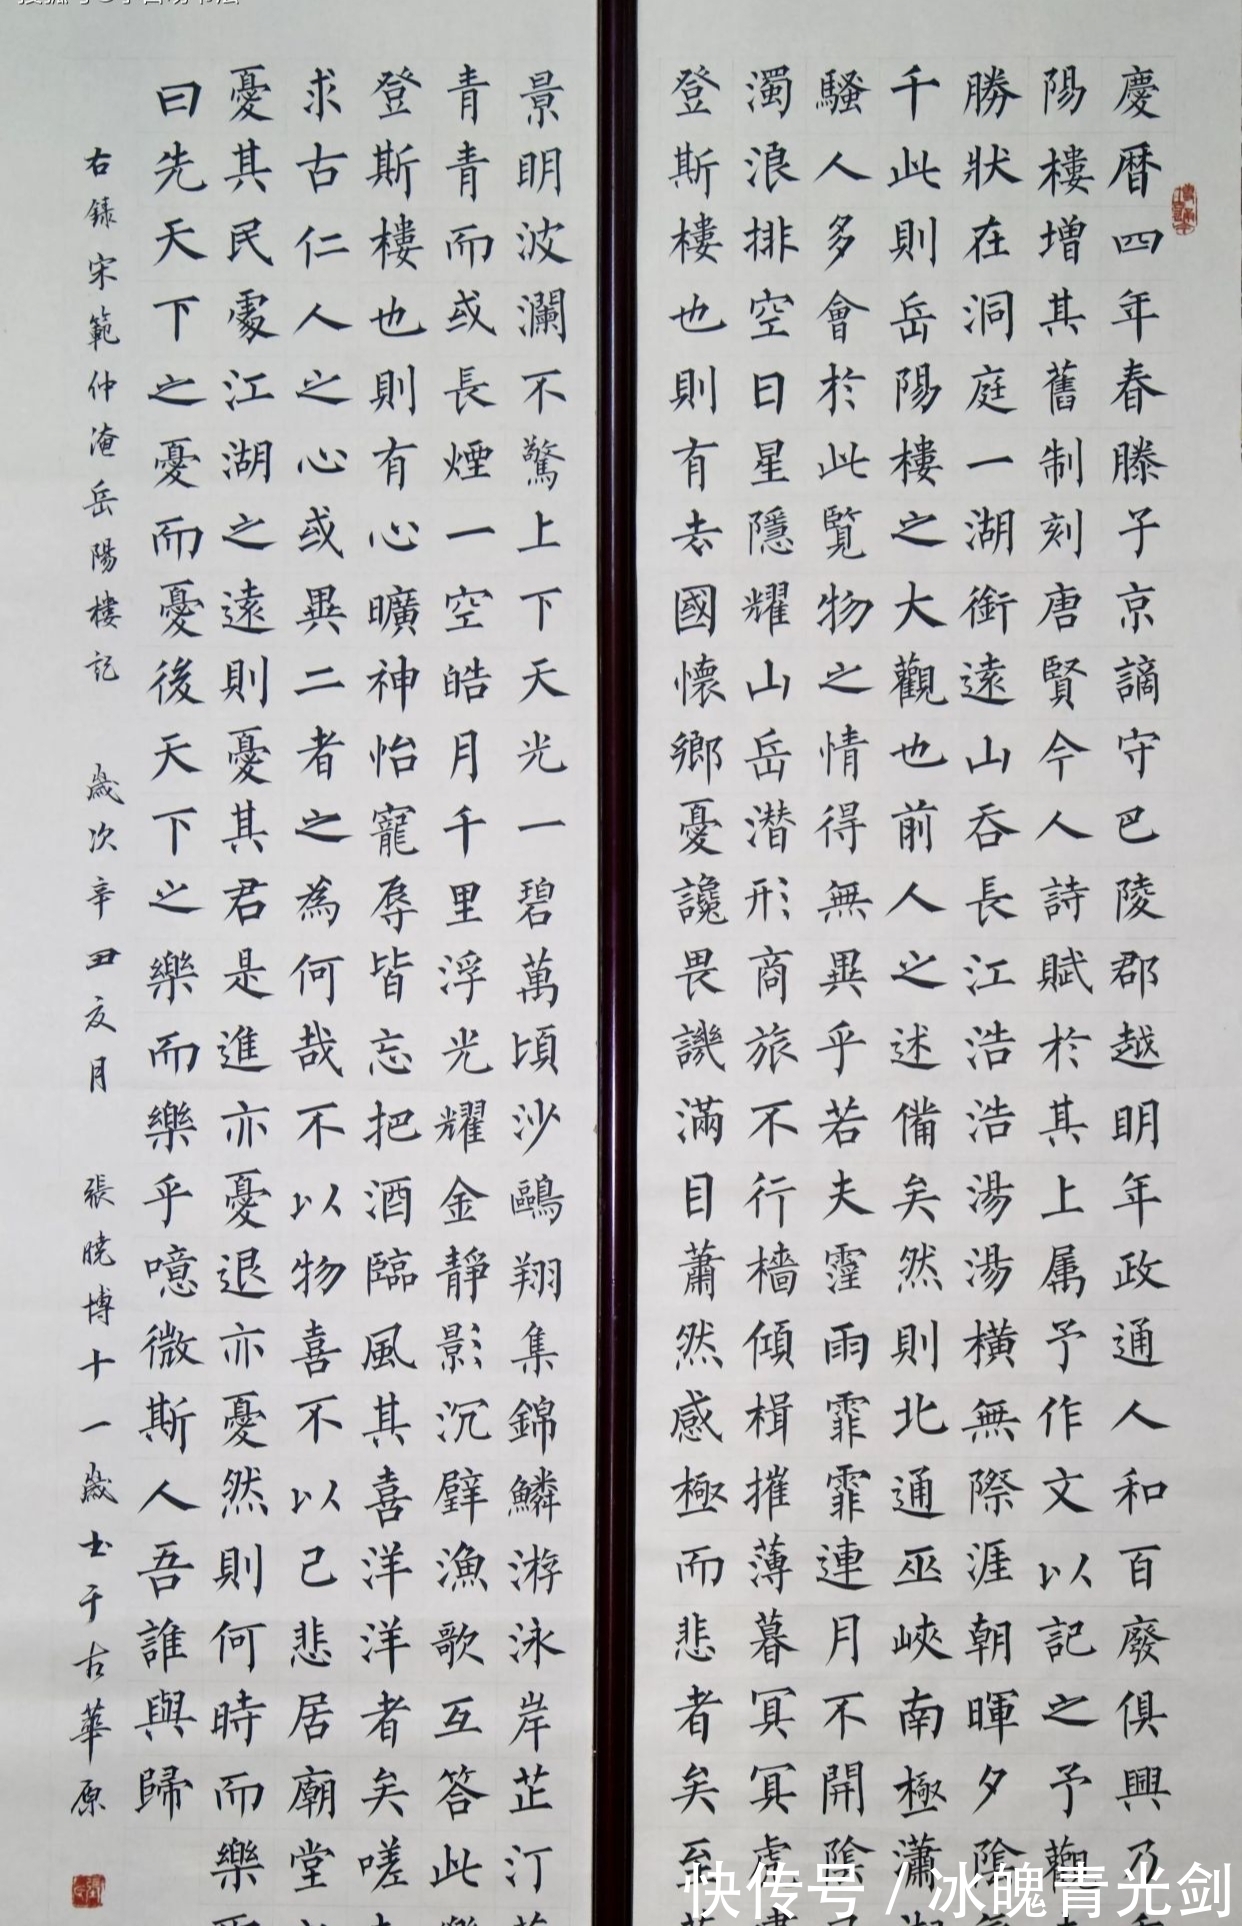 慶曆四年春滕子京謫守巴陵郡越明年政通人和百廢俱興乃
陽樓增其舊制刻唐賢今人詩賦於其上屬予作文以記之予觀
勝狀在洞庭一湖銜遠山吞長江浩浩湯湯橫無際涯朝暉夕陰
千此則岳陽樓之大觀也前人之述備矣然則北通巫峽南極瀟
騷人多會於此覽物之情得無異乎若夫霪雨霏霏連月不開陰
濁浪排空日星隱耀山岳潛形商旅不行檣傾楫摧薄暮冥冥虎
登斯樓也則有去國懷鄉憂讒畏譏滿目蕭然感極而悲者矣至
景明波瀾不驚上下天光一碧萬頃沙鷗翔集錦鱗游泳岸芷汀
青青而或長煙一空皓月千里浮光耀金靜影沉璧漁歌互答此
登斯樓也則有心曠神怡寵辱皆忘把酒臨風其喜洋洋者矣嗟
求古仁人之心或異二者之為何哉不以物喜不以己悲居廟堂
憂其民處江湖之遠則憂其君是進亦憂退亦憂然則何時而樂
曰先天下之憂而憂後天下之樂而樂乎噫微斯人吾誰與歸
右錄宋範仲淹岳陽樓記 歲次辛丑友月 張曉博十一歲士于古華原
快传号/冰魄青光剑